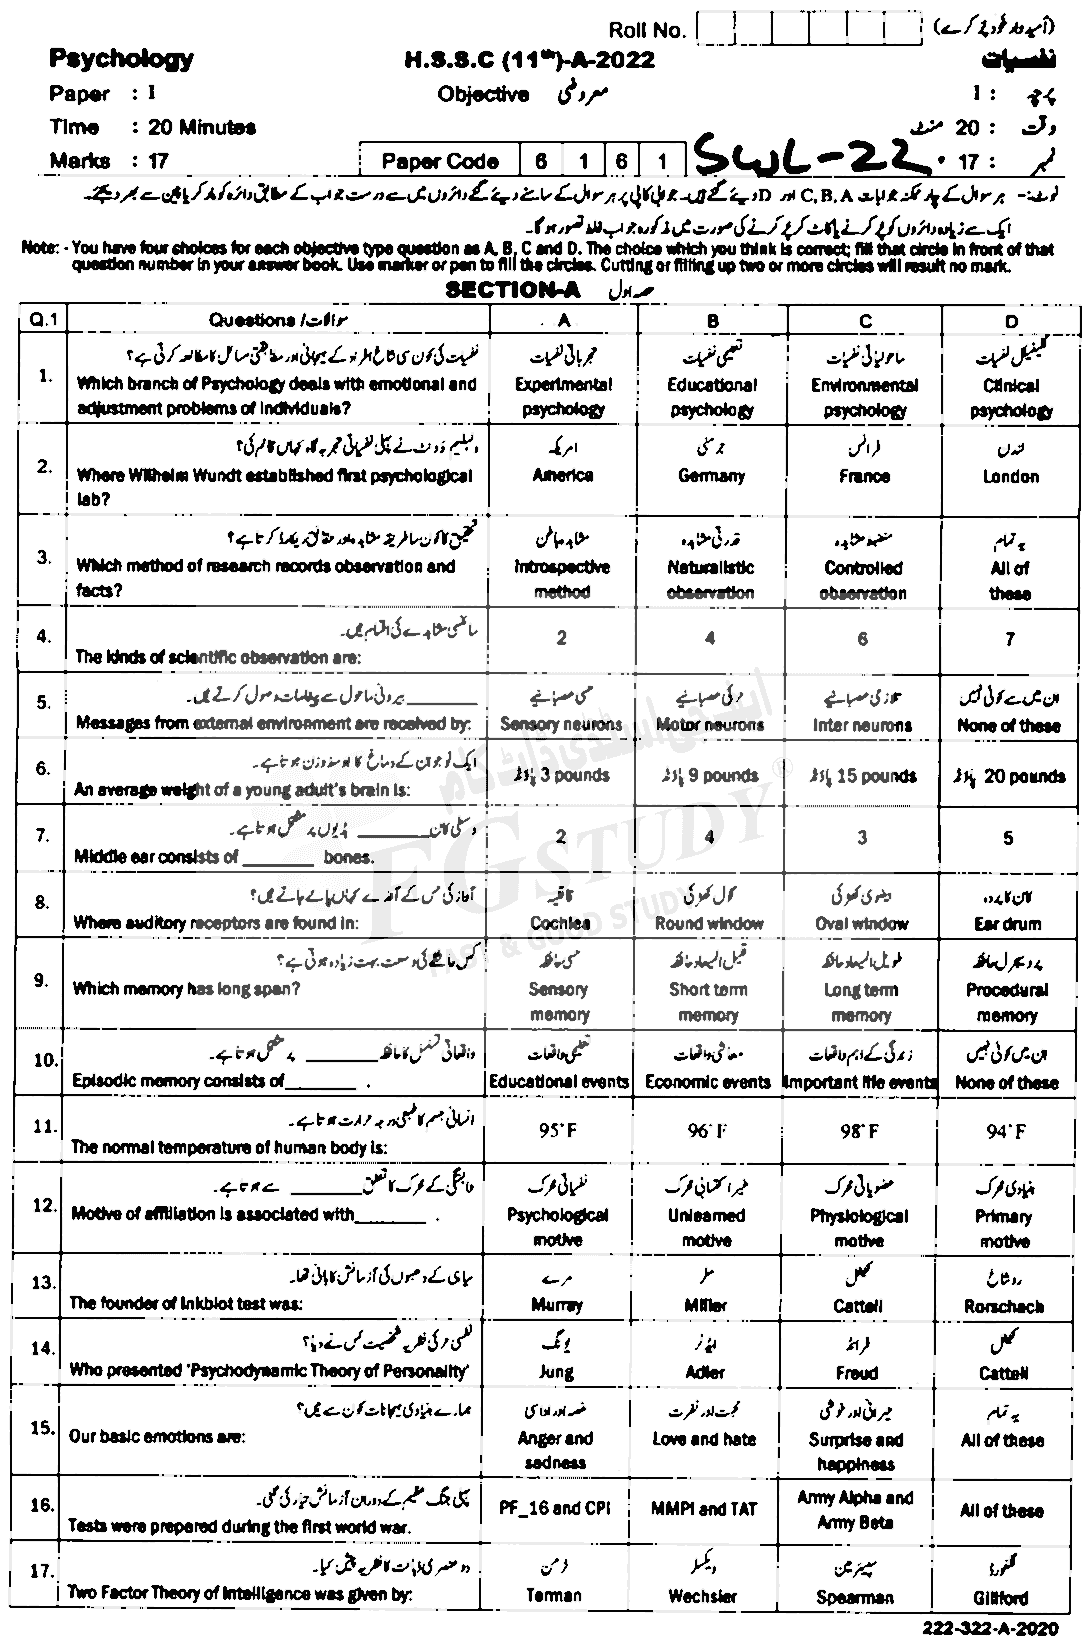 Roll No. (امیدوار خود پُر کرے)
Psychology H.S.S.C (11th)-A-2022 نفسیات
Paper : I Objective معروضی I : پرچہ
Time : 20 Minutes وقت : 20 منٹ
Marks : 17 Paper Code 6 1 6 1 SWL-22 17 : نمبر
نوٹ:- ہر سوال کے چار ممکنہ جوابات C, B, A اور D دیئے گئے ہیں۔ جوابی کاپی پر ہر سوال کے سامنے دیئے گئے دائروں میں سے درست جواب کے مطابق دائرہ کو مارکر یا پین سے بھر دیجئے۔
ایک سے زیادہ دائروں کو پُر کرنے یا کاٹ کر پُر کرنے کی صورت میں مذکورہ جواب غلط تصور ہو گا۔
Note: - You have four choices for each objective type question as A, B, C and D. The choice which you think is correct; fill that circle in front of that
question number in your answer book. Use marker or pen to fill the circles. Cutting or filling up two or more circles will result no mark.
SECTION-A حصہ اول
Q.1 Questions / سوالات A B C D
1. نفسیات کی کون سی شاخ افراد کے ہیجانی اور مطابقتی مسائل کا مطالعہ کرتی ہے؟ تجرباتی نفسیات تعلیمی نفسیات ماحولیاتی نفسیات کلینیکل نفسیات
Which branch of Psychology deals with emotional and Experimental Educational Environmental Clinical
adjustment problems of individuals? psychology psychology psychology psychology
2. ولہیلم وونٹ نے پہلی نفسیاتی تجربہ گاہ کہاں قائم کی؟ امریکہ جرمنی فرانس لندن
Where Wilhelm Wundt established first psychological America Germany France London
lab?
3. تحقیق کا کون سا طریقہ مشاہدہ اور حقائق ریکارڈ کرتا ہے؟ مشاہدہ باطن قدرتی مشاہدہ منضبط مشاہدہ یہ تمام
Which method of research records observation and Introspective Naturalistic Controlled All of
facts? method observation observation these
4. سائنسی مشاہدے کی اقسام ہیں۔ 2 4 6 7
The kinds of scientific observation are:
5. ________ بیرونی ماحول سے پیغامات وصول کرتے ہیں۔ حسی عصبانیے حرکی عصبانیے تلازمی عصبانیے ان میں سے کوئی نہیں
Messages from external environment are received by: Sensory neurons Motor neurons Inter neurons None of these
6. ایک نوجوان کے دماغ کا اوسط وزن ہوتا ہے۔ پاؤنڈ 3 pounds پاؤنڈ 9 pounds پاؤنڈ 15 pounds پاؤنڈ 20 pounds
An average weight of a young adult's brain is:
7. وسطی کان ________ ہڈیوں پر مشتمل ہوتا ہے۔ 2 4 3 5
Middle ear consists of ________ bones.
8. آواز کی حس کے آخذے کہاں پائے جاتے ہیں؟ کاقیہ گول کھڑکی بیضوی کھڑکی کان کا پردہ
Where auditory receptors are found in: Cochlea Round window Oval window Ear drum
9. کس حافظے کی وسعت بہت زیادہ ہوتی ہے؟ حسی حافظہ قلیل المیعاد حافظہ طویل المیعاد حافظہ پروسیجرل حافظہ
Which memory has long span? Sensory Short term Long term Procedural
memory memory memory memory
10. واقعاتی تمثل کا حافظہ ________ پر مشتمل ہوتا ہے۔ تعلیمی واقعات معاشی واقعات زندگی کے اہم واقعات ان میں کوئی نہیں
Episodic memory consists of ________ . Educational events Economic events Important life events None of these
11. انسانی جسم کا طبعی درجہ حرارت ہوتا ہے۔ 95°F 96°F 98°F 94°F
The normal temperature of human body is:
12. وابستگی کے محرک کا تعلق ________ سے ہوتا ہے۔ نفسیاتی محرک غیر اکتسابی محرک عضویاتی محرک بنیادی محرک
Motive of affiliation is associated with ________ . Psychological Unlearned Physiological Primary
motive motive motive motive
13. سیاہی کے دھبوں کی آزمائش کا بانی تھا۔ مرے ملر کیٹل روشاخ
The founder of Inkblot test was: Murray Miller Cattell Rorschach
14. نفسی حرکی نظریہ شخصیت کس نے دیا؟ یونگ ایڈلر فرائڈ کیٹل
Who presented 'Psychodynamic Theory of Personality' Jung Adler Freud Cattell
15. ہمارے بنیادی ہیجانات کون سے ہیں؟ غصہ اور اداسی محبت اور نفرت حیرانی اور خوشی یہ تمام
Our basic emotions are: Anger and Love and hate Surprise and All of these
sadness happiness
16. پہلی جنگ عظیم کے دوران آزمائش تیار کی گئی۔ PF_16 and CPI MMPI and TAT Army Alpha and All of these
Tests were prepared during the first world war. Army Beta
17. دو عنصری ذہانت کا نظریہ پیش کیا۔ ٹرمن ویکسلر سپیئرمین گلفورڈ
Two Factor Theory of Intelligence was given by: Terman Wechsler Spearman Gilford
222-322-A-2020
FG STUDY